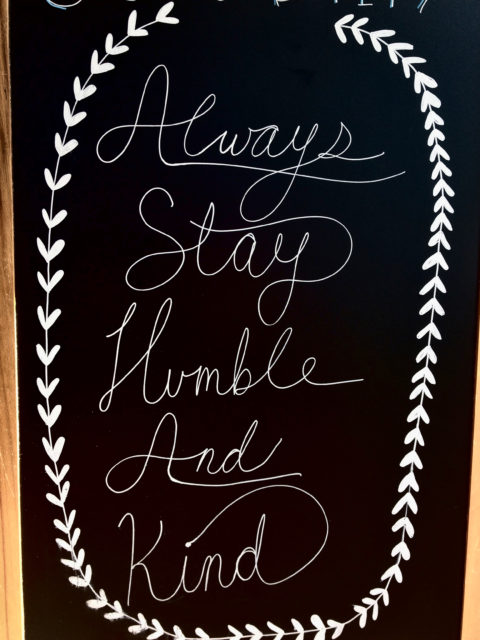 Always
Stay
Humble
And
Kind